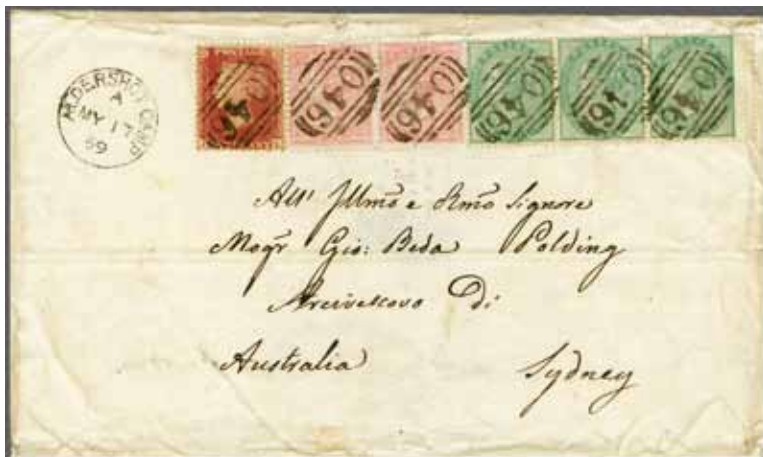 ALDERSHOT CAMP
A
MY 17
59
046 046 046 046 046 046
All' Illmo e Rmo Signore
Mogr Gio: Beda Polding
Arcivescovo Di
Australia Sydney